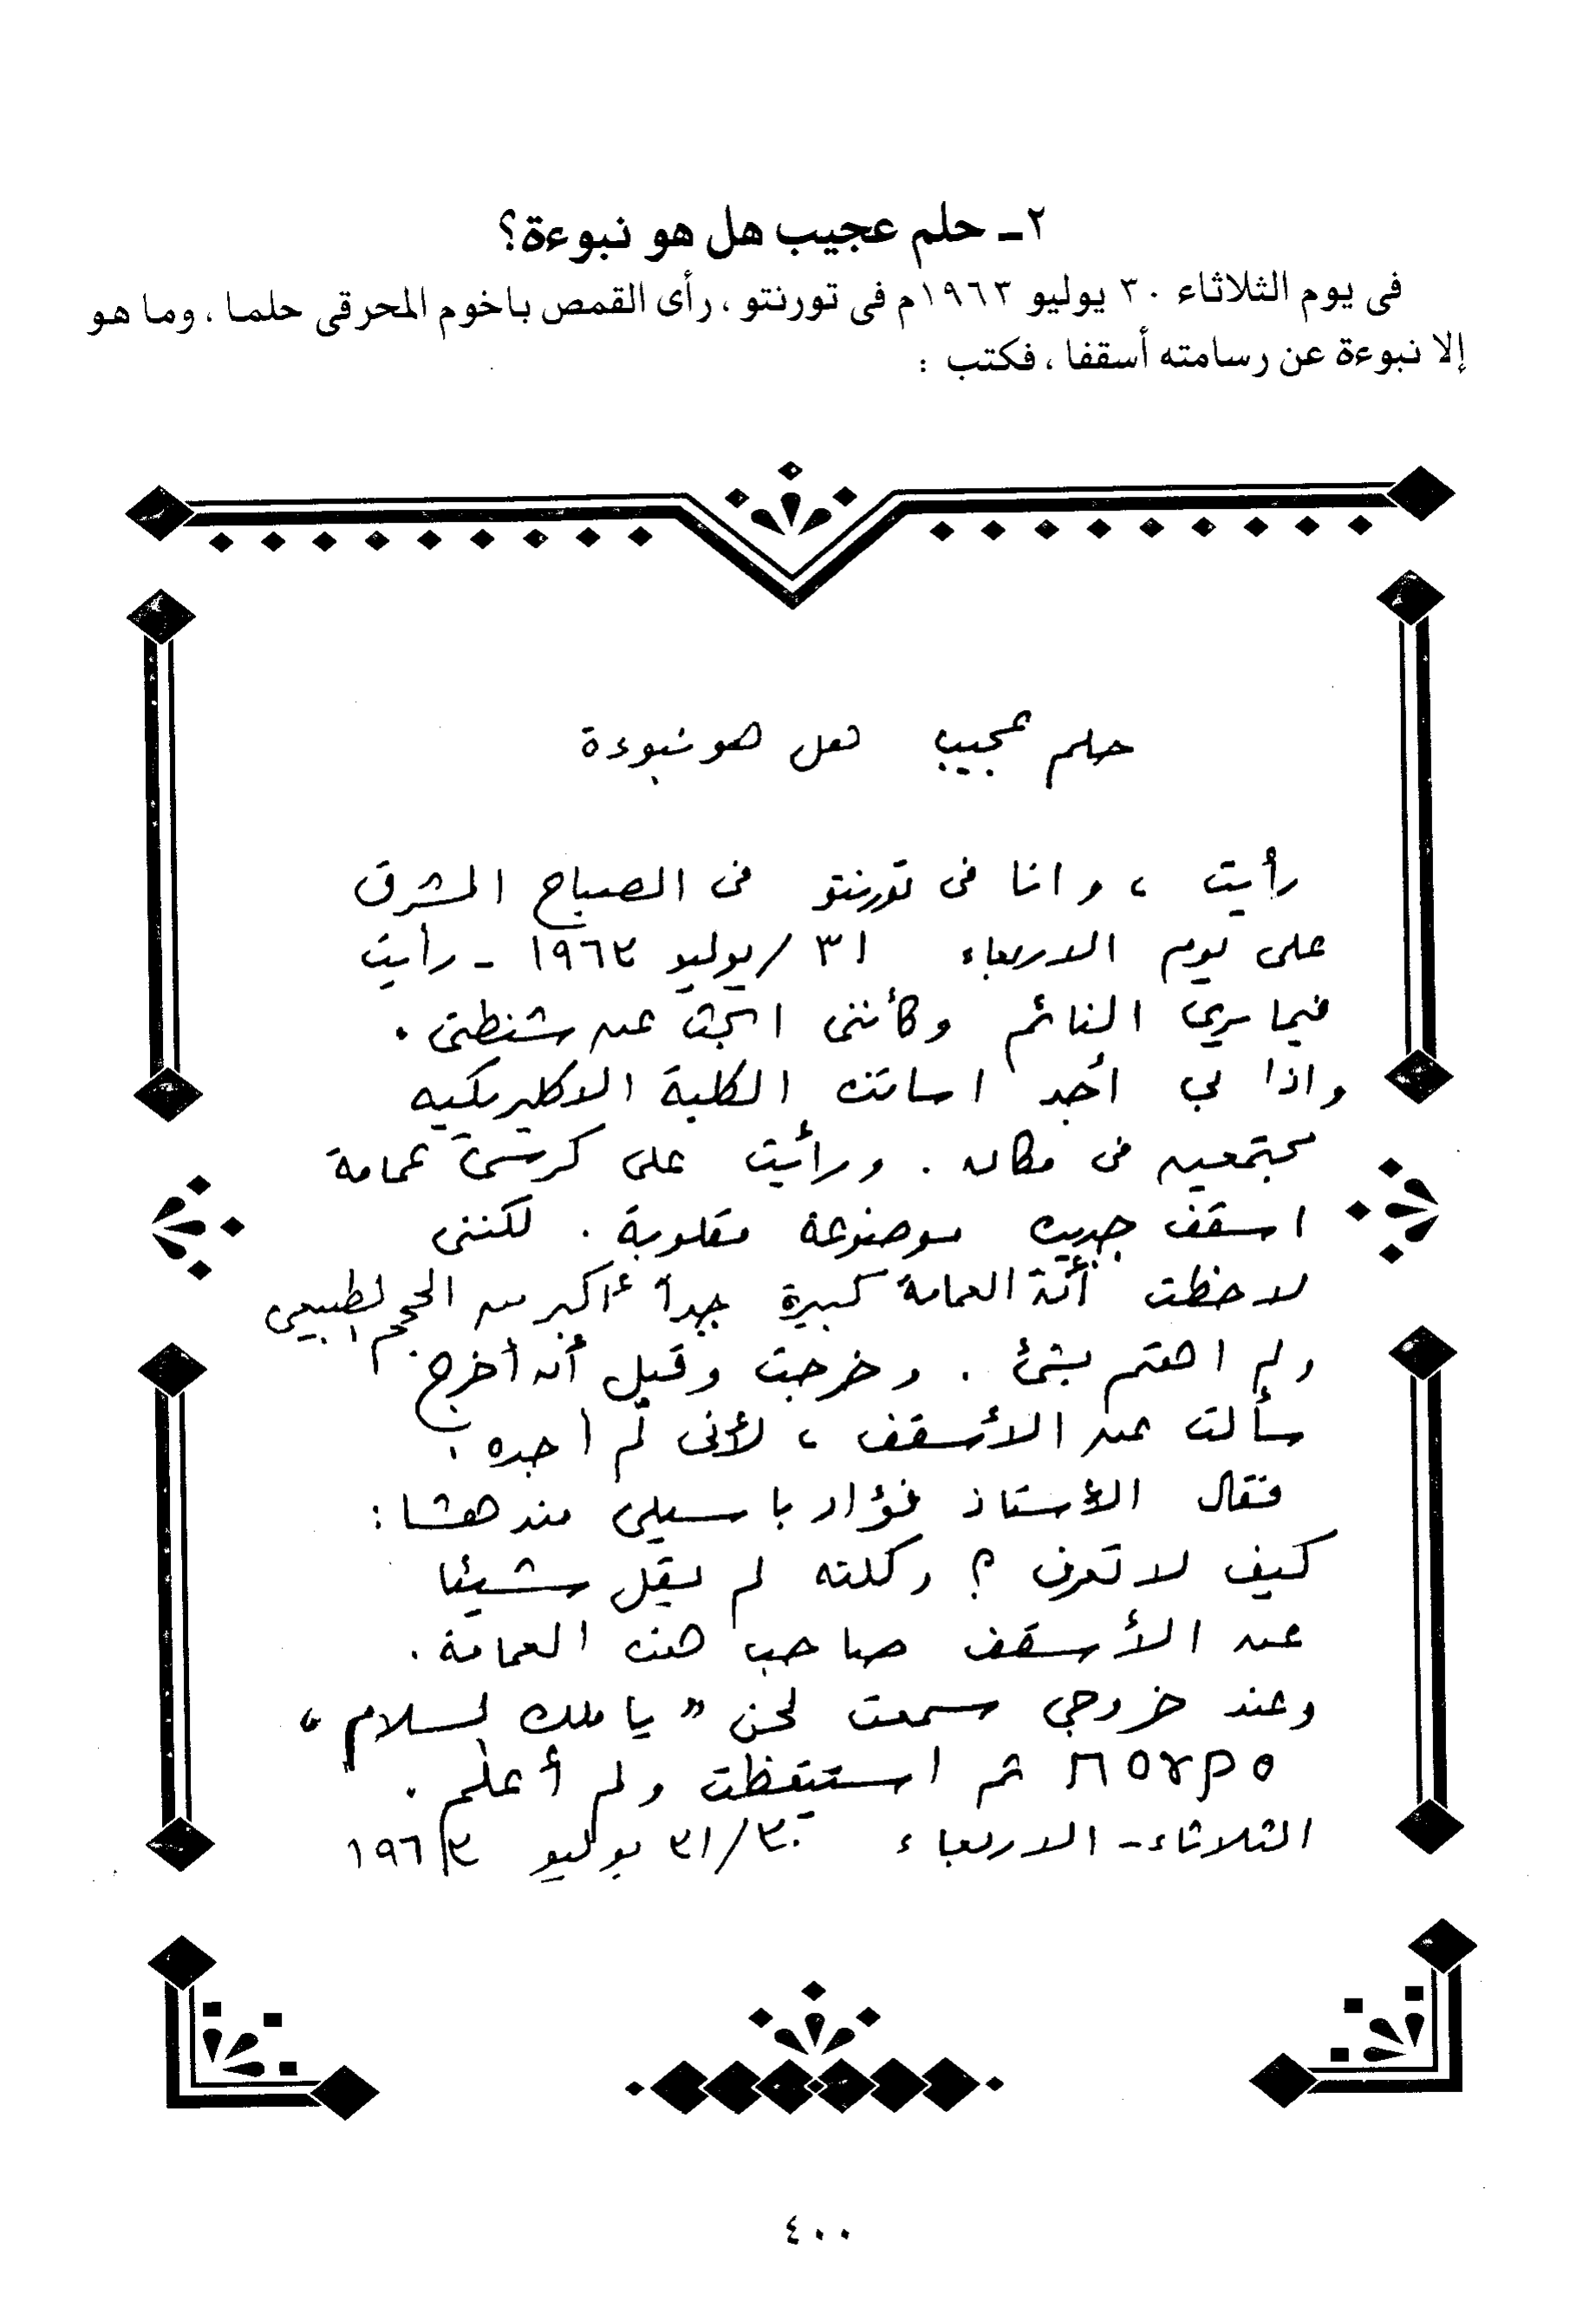 ٢ـ حلم عجيب هل هو نبوءة؟
فى يوم الثلاثاء ٣٠ يوليو ١٩٦٣م فى تورنتو ، رأى القمص باخوم المحرقى حلما ، وما هو
إلا نبوءة عن رسامته أسقفا ، فكتب :
حلم عجيب هل هو نبوءة
رأيت ، وانا فى تورنتو فى الصباح المشرق
على يوم الاربعاء ٣١ /يوليو ١٩٦٣ - رأيت
فيما يرى النائم وكأننى ابحث عن شنطتى .
واذا بى أجد اساتذة الكلية الاكليريكيه
مجتمعين فى مكان . ورأيت على كرسى عمامة
اسقف جديده موضوعة مقلوبة . لكننى
لاحظت أن العمامة كبيرة جداً أكبر من الحجم الطبيعى
ولم اهتم بشئ . وخرجت وقبل أن أخرج
سألت عن الأسقف ، لأنى لم أجده .
فقال الأستاذ فؤاد باسيلى مندهشا :
كيف لا تعرف ؟ ولكنه لم يقل شيئا
عن الأسقف صاحب هذه العمامة .
وعند خروجى سمعت لحن " يا ملك السلام "
ⲡⲟⲩⲣⲟ ثم استيقظت ولم أعلم .
الثلاثاء - الاربعاء ٣٠/٣١ يوليو ١٩٦٣
٤٠٠